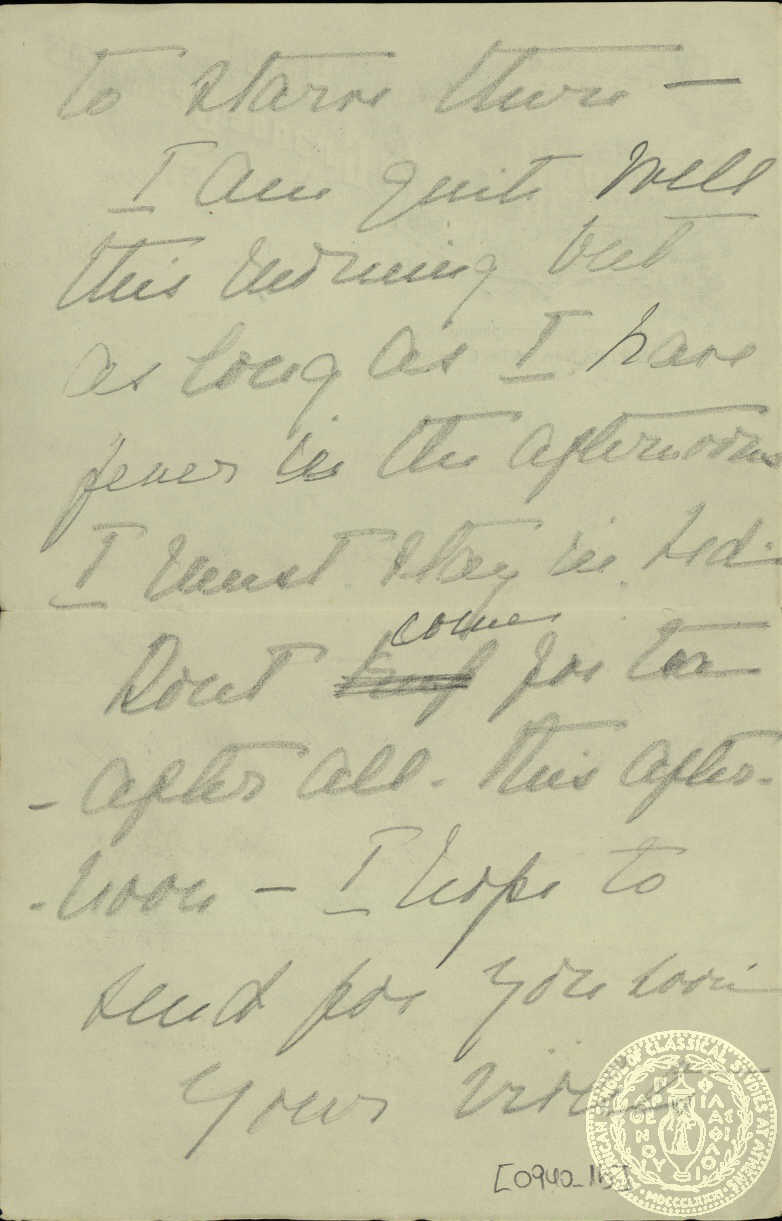 to starve there —
I am quite well
this morning but
as long as I have
fever in the afternoons
I must stay in bed.
Dont come for tea
- after all - this after-
- noon — I hope to
send for you soon
Yours Violet
[0940_15]
AMERICAN SCHOOL OF CLASSICAL STUDIES AT ATHENS
MDCCCLXXXI